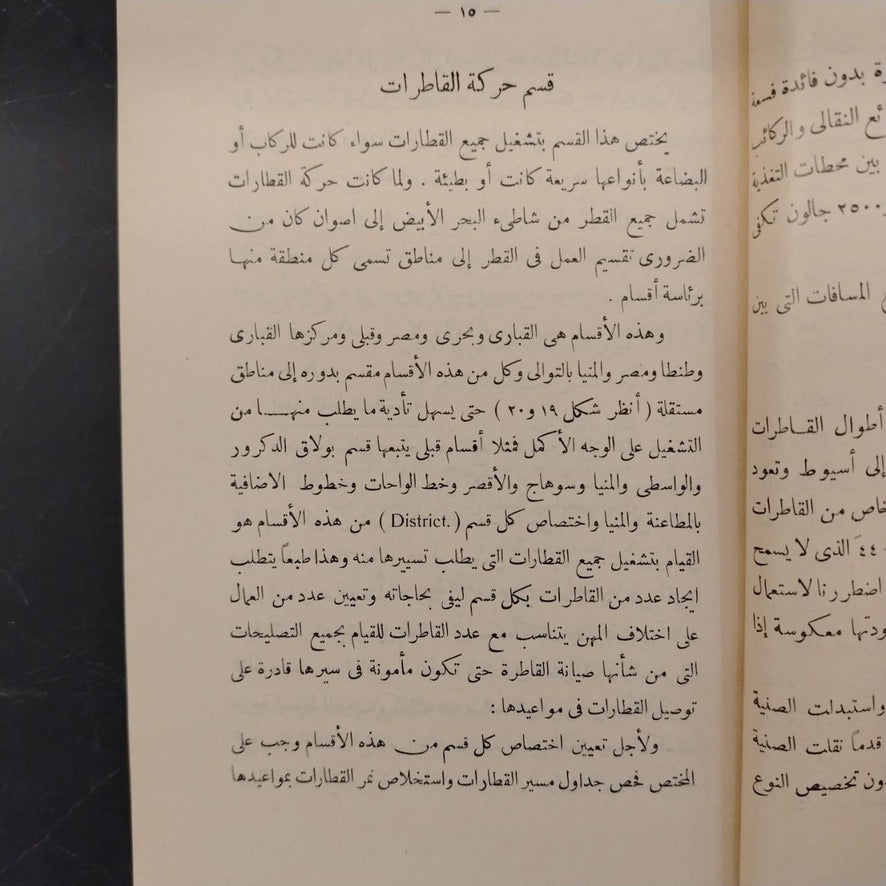 — ١٥ —
قسم حركة القاطرات
يختص هذا القسم بتشغيل جميع القطارات سواء كانت للركاب أو
البضاعة بأنواعها سريعة كانت أو بطيئة . ولما كانت حركة القطارات
تشمل جميع القطر من شاطىء البحر الأبيض إلى اصوان كان من
الضرورى تقسيم العمل فى القطر إلى مناطق تسمى كل منطقة منها
برئاسة أقسام .
وهذه الأقسام هى القبارى وبحرى ومصر وقبلى ومركزها القبارى
وطنطا ومصر والمنيا بالتوالى وكل من هذه الأقسام مقسم بدوره إلى مناطق
مستقلة ( أنظر شكل ١٩ و٢٠ ) حتى يسهل تأدية ما يطلب منهـا من
التشغيل على الوجه الأكمل فمثلا أقسام قبلى يتبعها قسم بولاق الدكرور
والواسطى والمنيا وسوهاج والأقصر وخط الواحات وخطوط الاضافية
بالمطاعنة والمنيا واختصاص كل قسم ( District. ) من هذه الأقسام هو
القيام بتشغيل جميع القطارات التى يطلب تسييرها منه وهذا طبعاً يتطلب
ايجاد عدد من القاطرات بكل قسم ليفى بحاجاته وتعيين عدد من العمال
على اختلاف المهن يتناسب مع عدد القاطرات للقيام بجميع التصليحات
التى من شأنها صيانة القاطرة حتى تكون مأمونة فى سيرها قادرة على
توصيل القطارات فى مواعيدها :
ولأجل تعيين اختصاص كل قسم من هذه الأقسام وجب على
المختص فحص جداول مسير القطارات واستخلاص نمر القطارات بمواعيدها
رة بدون فائدة فسعة
ئع النقالى والركائب
بين محطات التغذية
٢٥٠٠ جالون تكفى
المسافات التى بين
أطوال القـاطرات
إلى أسيوط وتعود
خاص من القاطرات
٤٤ الذى لا يسمح
اضطررنا لاستعمال
ودتها معكوسة إذا
واستبدلت الصنية
قدماً نقلت الصنية
دون تخصيص النوع